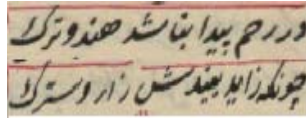 در رحم پیدا نباشد هندو ترک
چونکه زاید بیندش زار و سترک